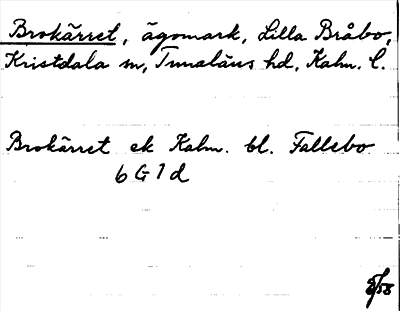 Brokärret, ägomark, Lilla Bråbo,
Kristdala sn, Tunaläns hd, Kalm. l.
Brokärret ek Kalm. bl. Fallebo
6 G 1 d